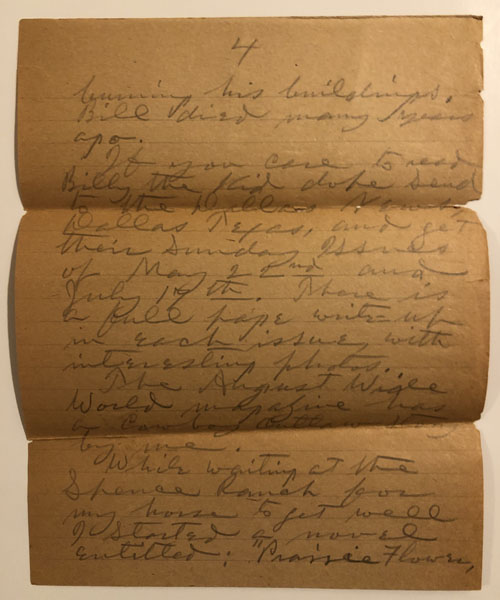 4
burning his buildings.
Bill died many years
ago.
If you care to read
Billy the Kid dope send
to the Dallas News,
Dallas Texas, and get
their Sunday Issues
of May 22nd and
July 17th. There is
a full page write-up
in each issue, with
interesting photos.
The August Wide
World magazine has
a Cowboy Outlaw
by me.
While waiting at the
Spence Ranch for
my horse to get well
I started a novel
entitled: "Prairie Flower,